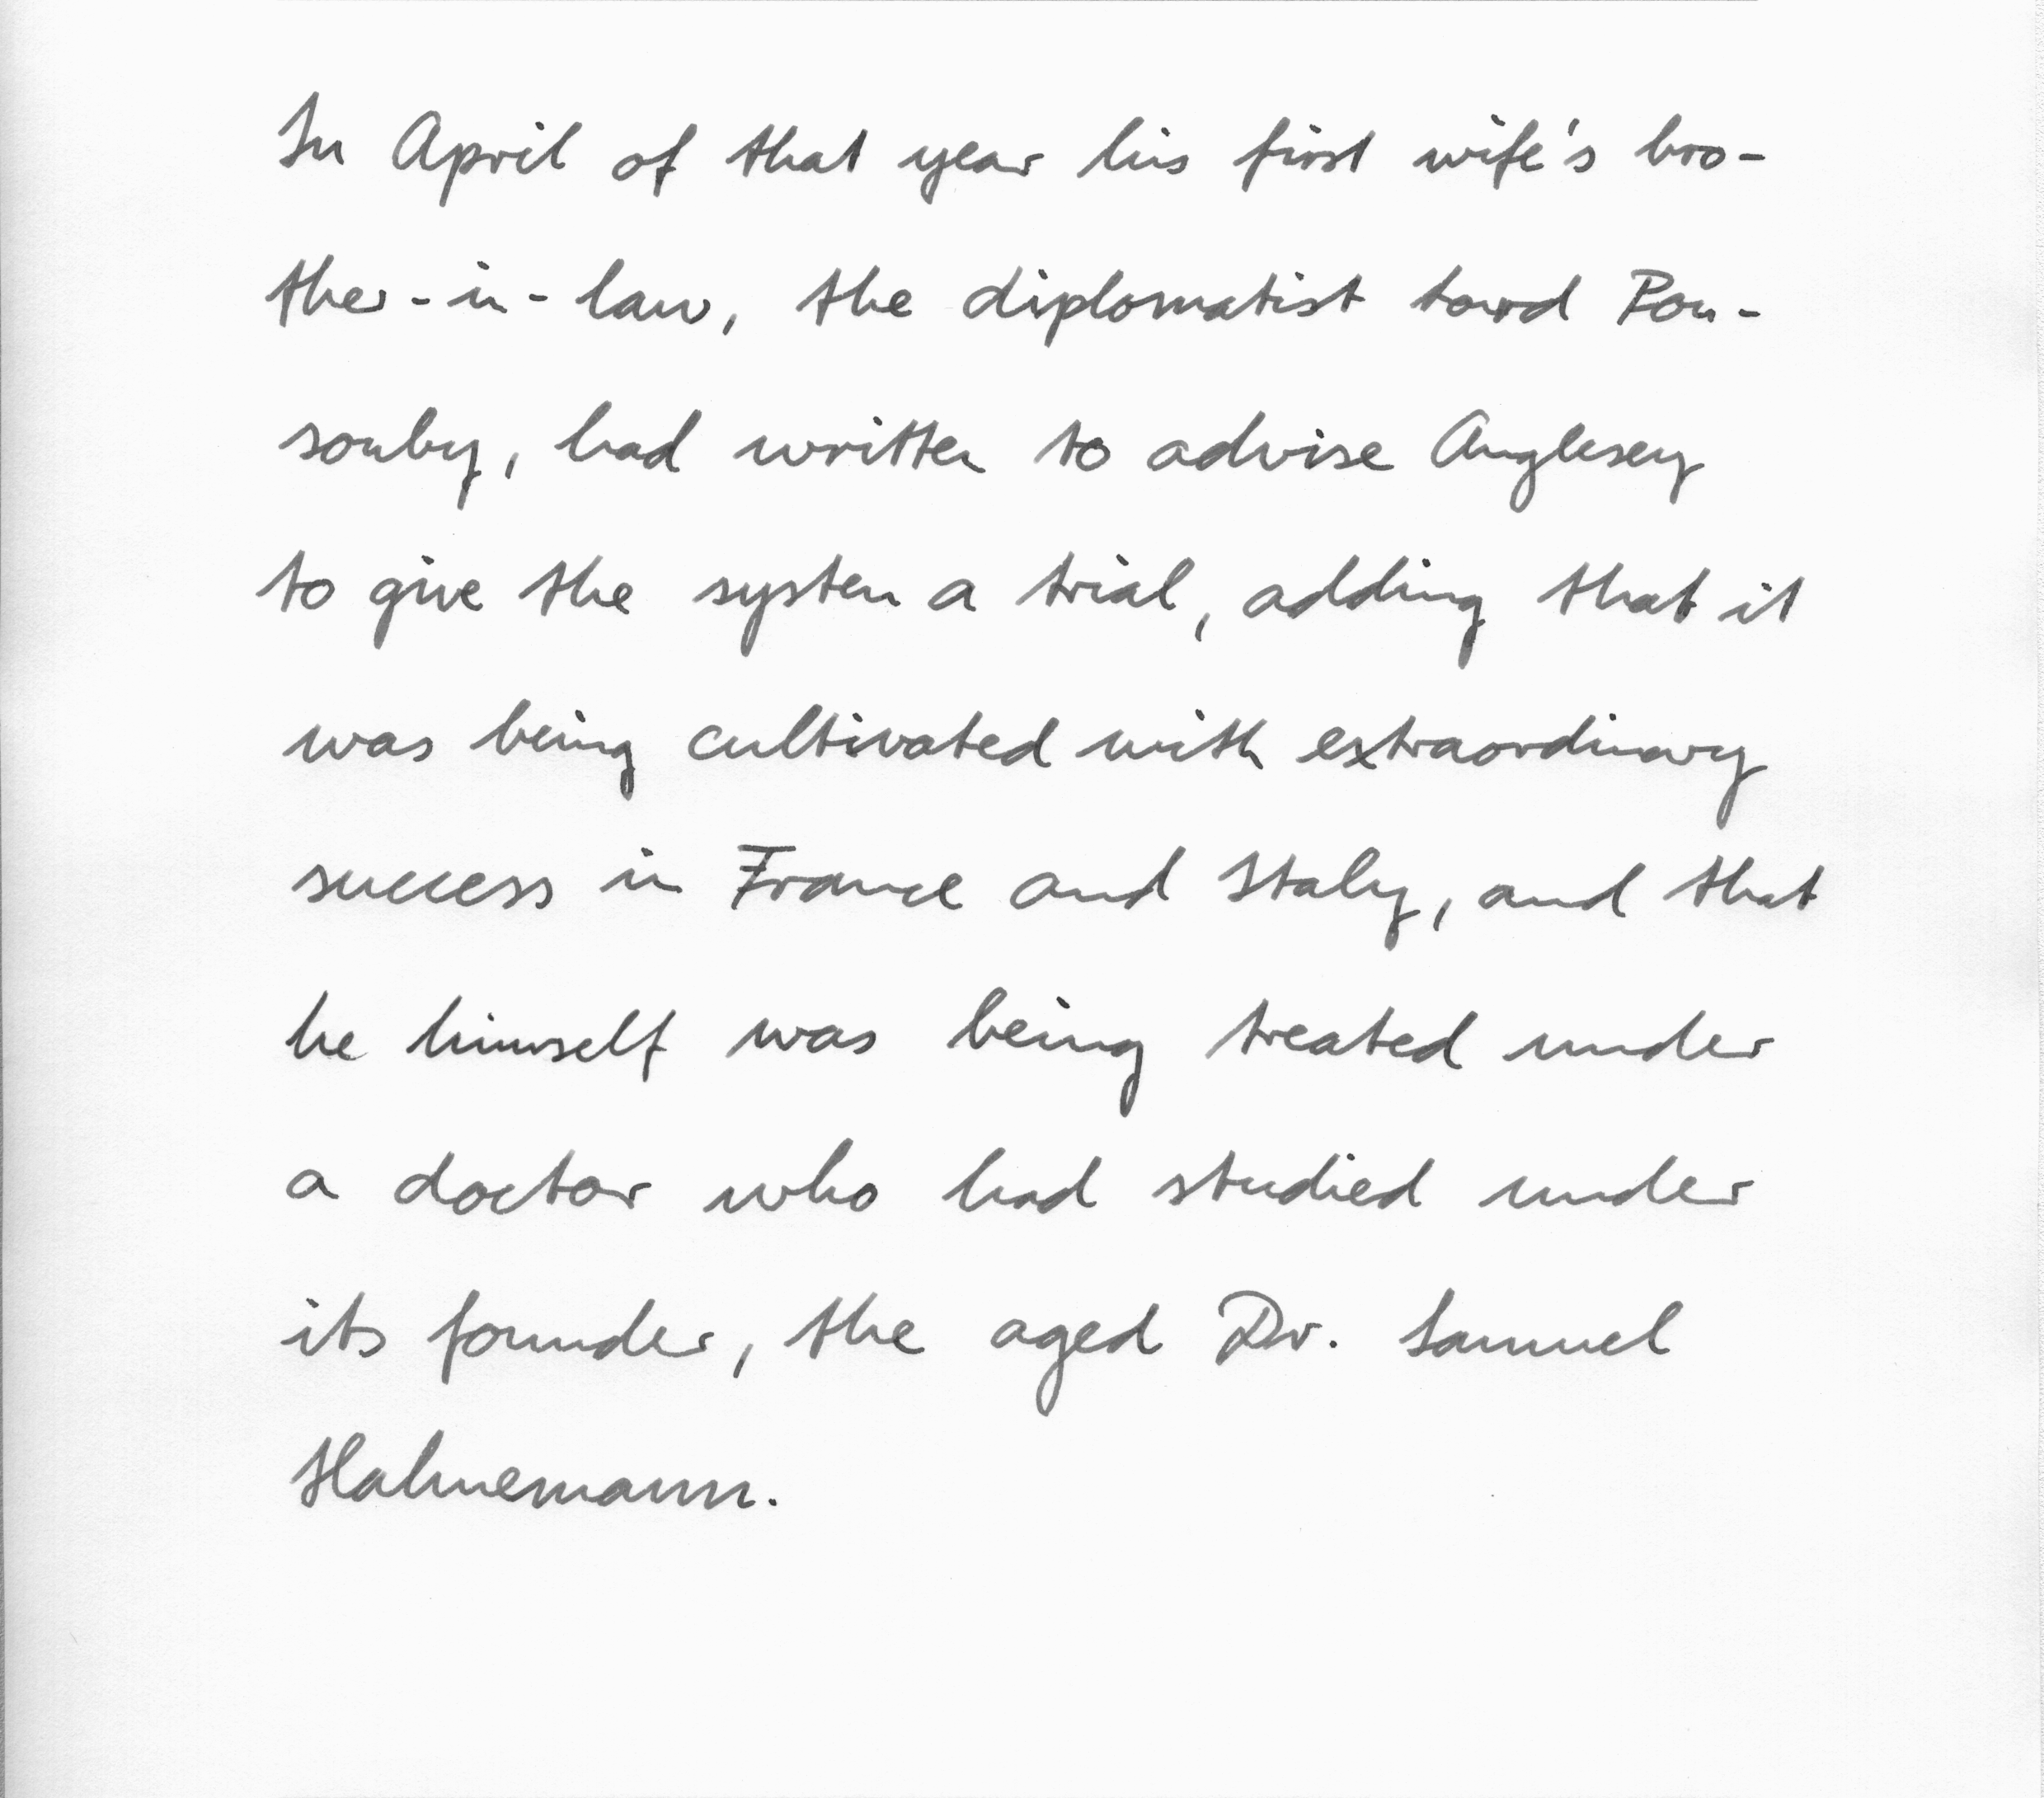 In April of that year his first wife's bro-
ther-in-law, the diplomatist Lord Pon-
sonby, had written to advise Anglesey
to give the system a trial, adding that it
was being cultivated with extraordinary
success in France and Italy, and that
he himself was being treated under
a doctor who had studied under
its founder, the aged Dr. Samuel
Hahnemann.